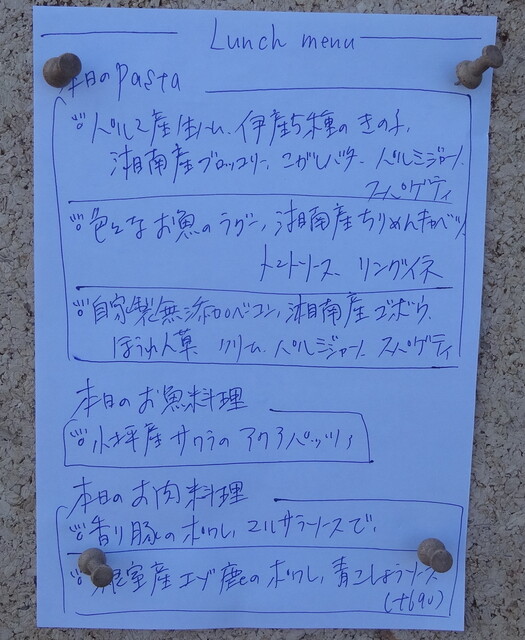 Lunch menu
本日のpasta
パルマ産生ハム、伊産5種のきの子、
湘南産ブロッコリー、こがしバター パルミジャーノ
スパゲティ
色々なお魚のラグー、湘南産ちりめんキャベツ
トマトソース リングイネ
自家製無添加ベーコン、湘南産ゴボウ
ほうれん草 クリーム パルミジャーノ スパゲティ
本日のお魚料理
小坪産サワラのアクアパッツァ
本日のお肉料理
香り豚のポワレ、マルサラソースで
根室産エゾ鹿のポワレ、青こしょうソース
(+690)